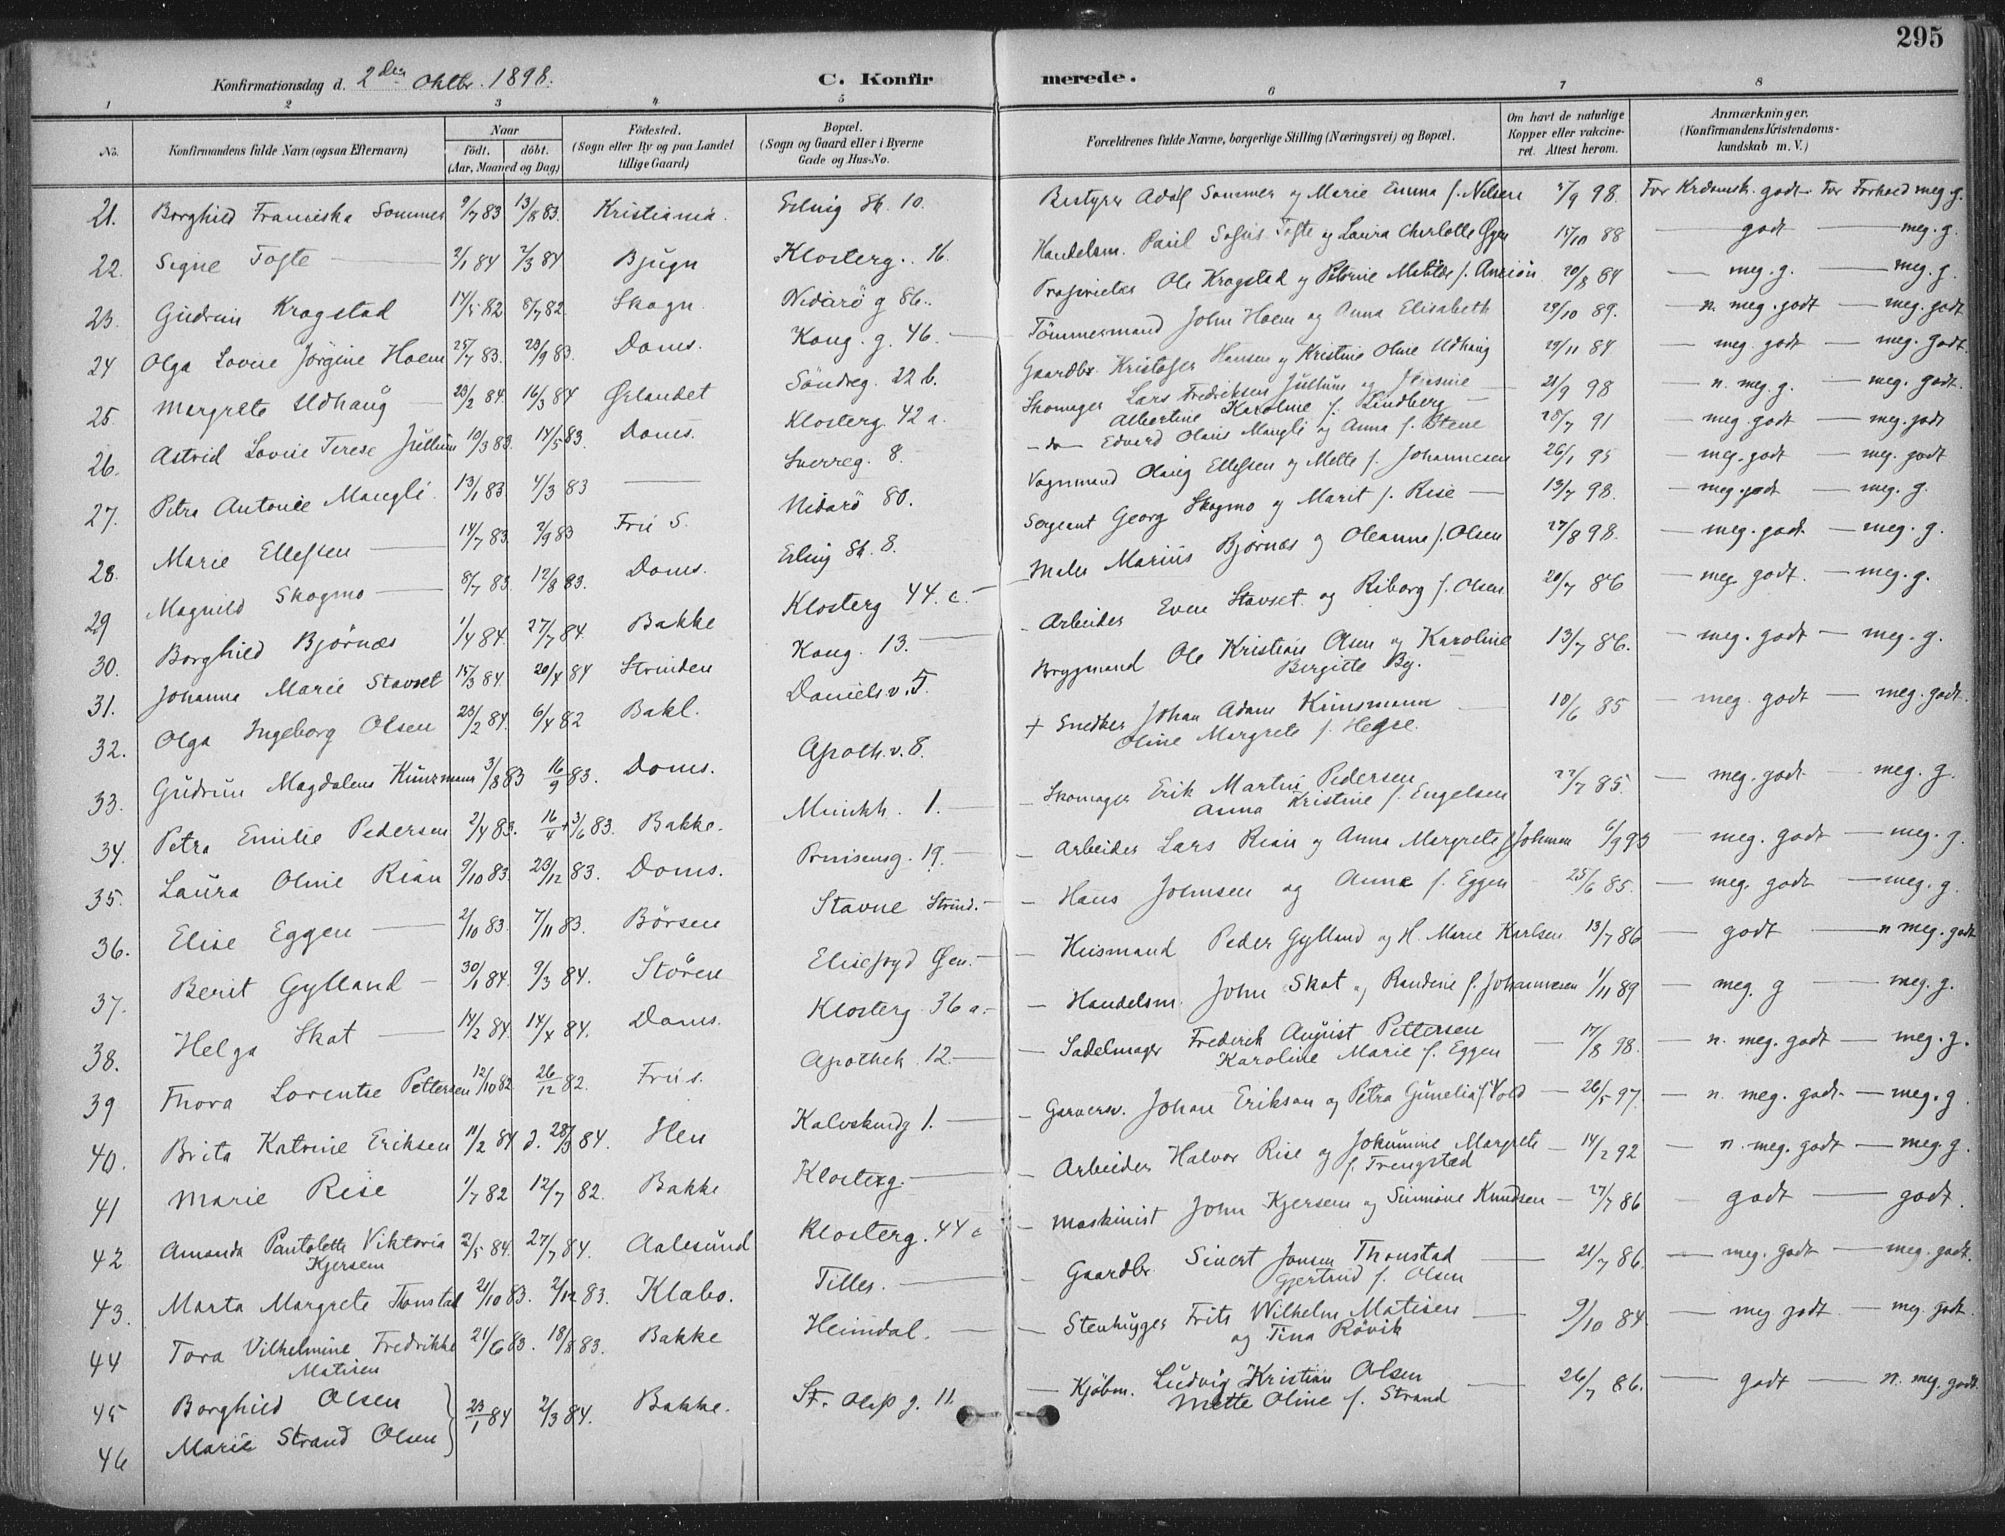 295
Konfirmationsdag d. 2den Oktbr. 1898.
C. Konfirmerede.
1 2 3 4 5 6 7 8
No.
Konfirmandens fulde Navn (ogsaa Efternavn)
Naar
født. døbt.
(Aar, Maaned og Dag)
Fødested.
(Sogn eller By og paa Landet
tillige Gaard)
Bopæl.
(Sogn og Gaard eller i Byerne
Gade og Hus-No.
Forældrenes fulde Navne, borgerlige Stilling (Næringsvei) og Bopæl.
Om havt de naturlige
Kopper eller vakcine-
ret. Attest herom.
Anmærkninger.
(Konfirmandens Kristendoms-
kundskab m. V.)
21. Borghild Franciska Sommer 9/7 83 13/8 83. Kristiania. Erling Sk. 10. Bestyrer Adolf Sommer og Marie Emma f. Nilsen 98. For Krdomsk. godt For Forhold meg. g.
22. Signe Tofte 84 2/3 84 Bjugn Klosterg. 16. Handelsm. Paul Tofte og Laura Charlotte 88 godt meg. g.
23. Gudrun Kragstad 14/5 82 8/7 82. Skogn. Nidarö g 86. Proprietær Ole Kragstad og Petrine Matilde f. 20/8 84 meg. g. meg. g.
24 Olga Lovise Jörgine Hoem 25/7 83. 23/9 83. Doms. Kong. g. 46. Tömmermand John Hoem og Anna Elisabeth 29/10 89. n. meg. godt meg. godt
25. Margrete Udhaug 23/2 84. 16/3 84 Ørlandet Söndreg. 22 b. Gaardbr Kristofer Hansen og Kristine Oline Udhaug 29/11 84 meg. godt meg. godt.
26. Astrid Lovise Terese Jullum 10/3 83. 14/5 83. Doms. Klosterg. 42 a. Skomager Lars Fredriksen Jullum og Jensine
Albertine Karoline f. Lindberg 21/9 98 n. meg. g. meg. godt.
27. Petra Antonie Mangli 13/1 83. 4/3 83 Sverreg. 8. do Edvard Olaus Mangli og Anna f. Stene 28/7 91 meg godt meg. godt
28. Marie Ellefsen 14/7 83. 2/9 83 Fru S. Nidarö 80. Vognmand Olaug Ellefsen og Mette f. Johannesen 26/1 95 meg. godt meg. godt
29 Magnild Skogmo 8/7 83. 12/8 83. Doms. Erling Sk. 8. Sergeant Georg Skogmo og Marit f. Rise 13/7 98. meg. godt meg. g.
30. Borghild Björnæs 1/4 84. 27/7 84. Bakke Klosterg 44. c. Maler Marius Björnæs og Oleanna f. Olsen 27/8 98. meg. godt meg. g.
31. Johanna Marie Stavset 15/3 84. 20/4 84 Strinden Kong. 13. Arbeider Even Stavset og Riborg f. Olsen 20/7 86 meg godt. meg. g.
32. Olga Ingeborg Olsen 23/2 84. 6/4 82 Bakl. Daniels v. 5. Brygmand Ole Kristian Olsen og Karoline
Birgitte By. 13/7 86. meg. godt meg. g.
33. Gudrun Magdalena Kunzmann 3/8 83 16/9 83. Doms. Apoth. v. 8. + Snedker Johan Adam Kunsmann
Oline Margrete f. Hegre. 10/6 85 meg. godt meg. godt.
34. Petra Emilie Pedersen 2/4 83. 16/4 + 3/6 83. Bakke. Munkh. 1. Skomager Erik Martin Pedersen
Anna Kristine f. Engelsen 22/7 85. meg. godt meg. g.
35. Laura Oline Rian 9/10 83. 23/12 83. Doms. Prinsensg. 19. Arbeider Lars Rian og Anna Margrete f. Johnsen 6/9 93 meg. godt meg. g.
36. Elise Eggen 2/10 83. 7/11 83. Börsen Stavne Strind. Hans Johnsen og Anna f. Eggen 25/6 85. meg. godt meg. g.
37. Berit Gylland 30/1 84. 9/3 84. Stören Elisefryd Øen. Husmand Peder Gylland og H. Marie Karlsen 13/7 86 godt n meg. godt
38. Helga Skat 14/2 84. 14/4 84. Doms. Klosterg. 36 a. Handelsm. John Skat og Randine f. Johannesen 1/11 89 meg. g meg. g.
39 Thora Lorentse Pettersen 12/10 82. 26/12 82. Fru s. Apothek 12. Sadelmager Frederik August Pettersen
Karoline Marie f. Eggen 17/8 98. n. meg. godt meg. g.
40. Brita Katrine Eriksen 10/2 84 d. 28/3 84. Hen Kalvskindg 1. Garversv. Johan Eriksen og Petra Gunelia f. Vold 26/5 97. n. meg. godt meg. g
41 Marie Rise 1/7 82 12/7 82. Bakke Klosterg. Arbeider Halvor Rise og Johannine Margrete
f. Trengstad 14/2 92 n. meg. godt meg. g.
42. Amanda Pantolette Viktoria
Kjersem 2/5 84. 27/7 84. Aalesund Klosterg. 44 c Maskinist John Kjersem og Simmone Knudsen 27/7 86 godt godt.
43. Marta Margrete Tonstad 21/10 83. 2/12 83. Klæbo. Tiller. Gaardbr. Sivert Jonsen Thonstad
Gjertrud f. Olsen 21/7 86. meg. godt meg. godt.
44 Tora Vilhelmine Fredrikke
Matisen 21/6 83. 18/8 83. Bakke Heimdal. Stenhugger Frits Wilhelm Matisen
og Tina Rövik 9/10 84. meg godt meg. godt.
45 Borghild Olsen 23/1 84 2/3 84. Bakke. St. Olafs g. 11. Kjöbm. Ludvig Kristian Olsen
Mette Oline f. Strand 26/7 86. godt n. meg. godt.
46 Marie Strand Olsen